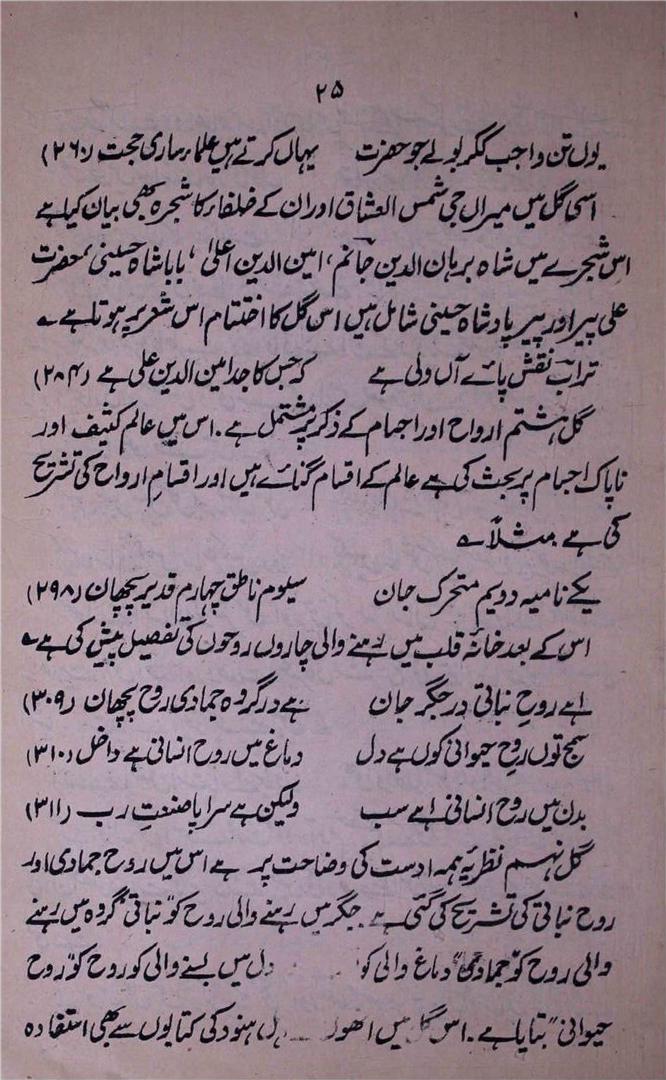 ۲۵
یوں تن واجب ککر بولے جو حضرت یہاں کرتے ہیں علماء ساری حجت (۲۶۰)
اسی گل میں میراں جی شمس العشاق اور ان کے خلفار کا شجرہ بھی بیان کیا ہے
اس شجرے میں شاہ برہان الدین جانم، امین الدین اعلیٰ، بابا شاہ حسینی، حضرت
علی پیر اور پیر بادشاہ حسینی شامل ہیں اس گل کا اختتام اس شعر پر ہوتا ہے ؎
تراب نقش پائے آں ولی ہے کہ جس کا جد امین الدین علی ہے (۲۸۴)
گل ہشتم ارواح اور اجسام کے ذکر پر مشتمل ہے. اس میں عالم کثیف اور
ناپاک اجسام پر بحث کی ہے عالم کے اقسام گنائے ہیں اور اقسام ارواح کی تشریح
کی ہے. مثلاً ؎
یکے نامیہ دویم متحرک جان سیلوم ناطق چہارم قدیر پچھان (۲۹۸)
اس کے بعد خانۂ قلب میں رہنے والی چاروں روحوں کی تفصیل پیش کی ہے ؎
اہے روح نباتی در جگر جان ہے در گروہ جمادی روح پچھان (۳۰۹)
سمج توں روح حیوانی کوں ہے دل دماغ میں روح انسانی ہے داخل (۳۱۰)
بدن میں روح انسانی اہے سب ولیکن ہے سراپا صنعت رب (۳۱۱)
گل نہم نظریہ ہمہ اوست کی وضاحت پر ہے اس میں روح جمادی اور
روح نباتی کی تشریح کی گئی ہے. جگر میں رہنے والی روح کو "نباتی" گروہ میں رہنے
والی روح کو "جمادی" دماغ والی کو دل میں بسنے والی کو روح کو "روح
حیوانی" بتایا ہے. اس گل میں ہنود کی کتابوں سے بھی استفادہ